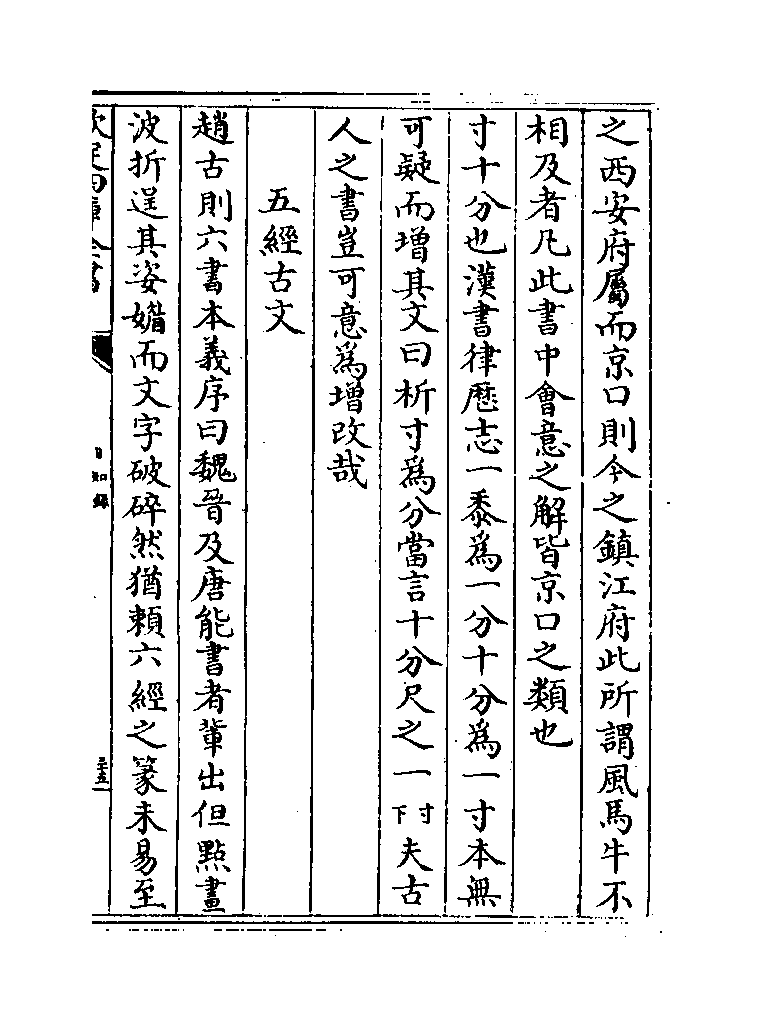 之西安府屬而京口則今之鎮江府此所謂風馬牛不
相及者凡此書中會意之解皆京口之類也
寸十分也漢書律歷志一黍為一分十分為一寸本無
可疑而增其文曰析寸為分當言十分尺之一寸下夫古
人之書豈可意為增改哉
五經古文
趙古則六書本義序曰魏晉及唐能書者輩出但點畫
波折逞其姿媚而文字破碎然猶賴六經之篆未易至
欽定四庫全書
日知錄
二十五